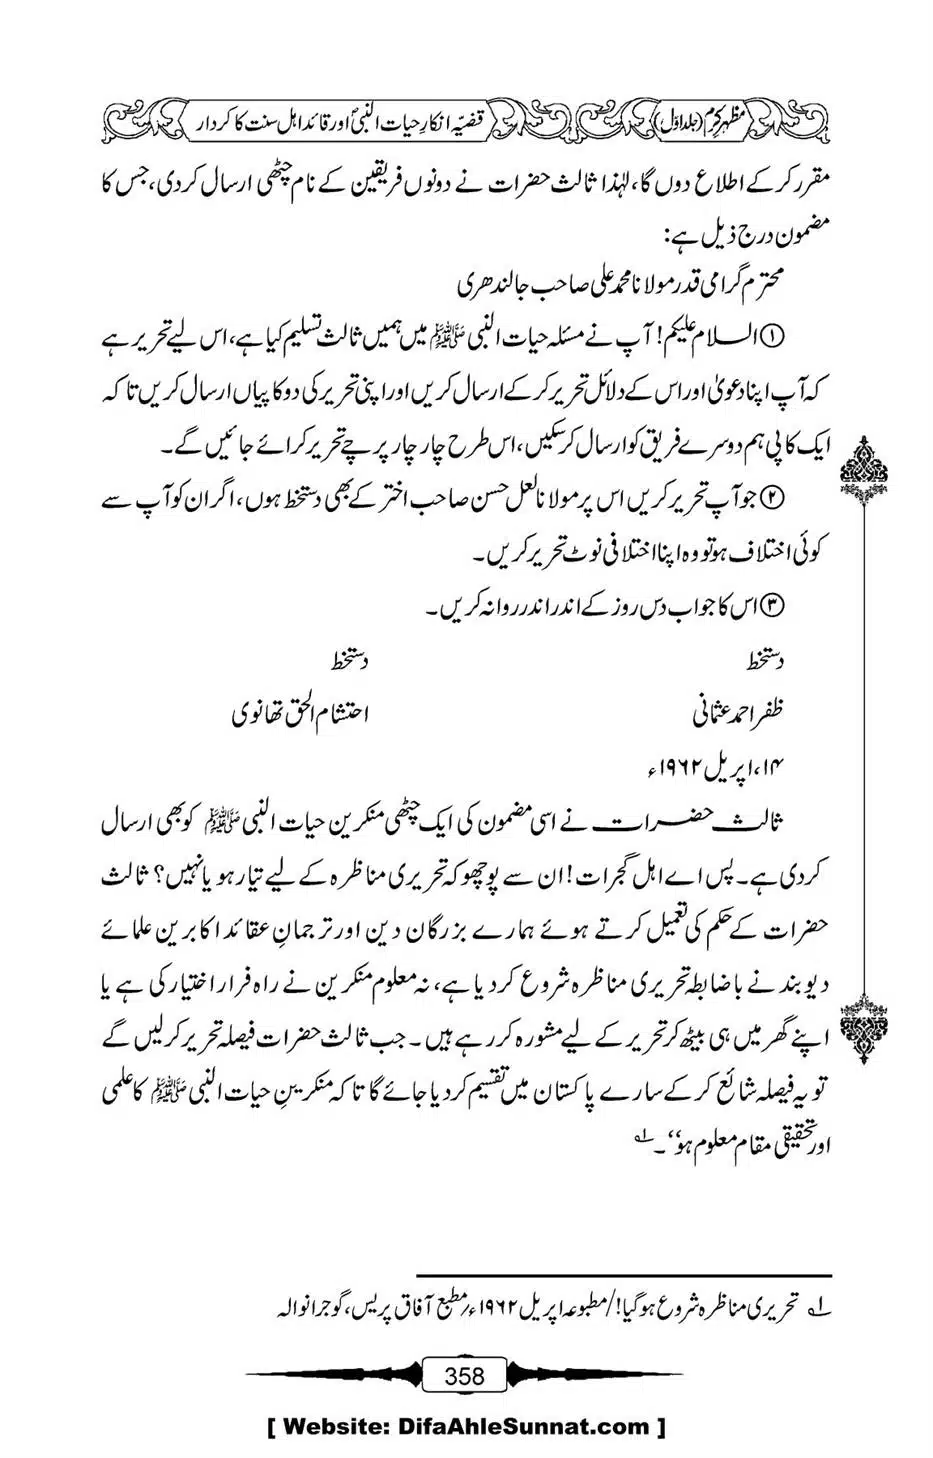 مظہرِ کرم (جلد اوّل) قضیّہ انکارِ حیات النبیؐ اور قائد اہل سنت کا کردار
مقرر کر کے اطلاع دوں گا، لہٰذا ثالث حضرات نے دونوں فریقین کے نام چٹھی ارسال کر دی، جس کا
مضمون درج ذیل ہے:
محترم گرامی قدر مولانا محمد علی صاحب جالندھری
①السلام علیکم! آپ نے مسئلہ حیات النبی ﷺ میں ہمیں ثالث تسلیم کیا ہے، اس لیے تحریر ہے
کہ آپ اپنا دعویٰ اور اس کے دلائل تحریر کر کے ارسال کریں اور اپنی تحریر کی دو کاپیاں ارسال کریں تا کہ
ایک کاپی ہم دوسرے فریق کو ارسال کر سکیں، اس طرح چار چار پرچے تحریر کرائے جائیں گے۔
②جو آپ تحریر کریں اس پر مولانا لعل حسن صاحب اختر کے بھی دستخط ہوں، اگر ان کو آپ سے
کوئی اختلاف ہو تو وہ اپنا اختلافی نوٹ تحریر کریں۔
③اس کا جواب دس روز کے اندر اندر روانہ کریں۔
دستخط دستخط
ظفر احمد عثمانی احتشام الحق تھانوی
۱۴، اپریل ۱۹۶۲ء
ثالث حضرات نے اسی مضمون کی ایک چٹھی منکرین حیات النبی ﷺ کو بھی ارسال
کر دی ہے۔ پس اے اہل گجرات! ان سے پوچھو کہ تحریری مناظرہ کے لیے تیار ہو یا نہیں؟ ثالث
حضرات کے حکم کی تعمیل کرتے ہوئے ہمارے بزرگان دین اور ترجمانِ عقائد اکابرین علمائے
دیوبند نے باضابطہ تحریری مناظرہ شروع کر دیا ہے، نہ معلوم منکرین نے راہ فرار اختیار کی ہے یا
اپنے گھر میں ہی بیٹھ کر تحریر کے لیے مشورہ کر رہے ہیں۔ جب ثالث حضرات فیصلہ تحریر کر لیں گے
تو یہ فیصلہ شائع کر کے سارے پاکستان میں تقسیم کر دیا جائے گا تا کہ منکرینِ حیات النبی ﷺ کا علمی
اور تحقیقی مقام معلوم ہو‘‘۔ ؎۱
؎۱ تحریری مناظرہ شروع ہو گیا!/ مطبوعہ اپریل ۱۹۶۲ء/ مطبع آفاق پریس، گوجرانوالہ
358
[ Website: DifaAhleSunnat.com ]